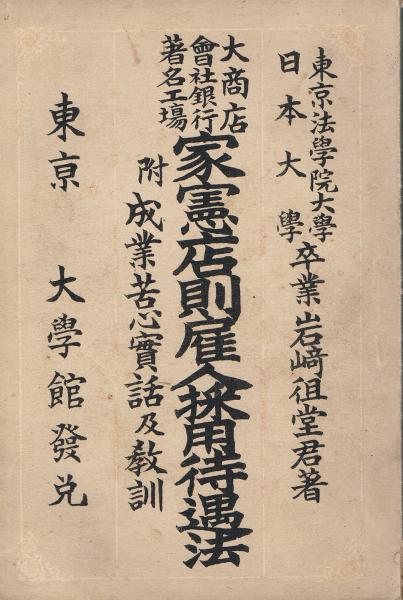 東京法學院大學
日本大學
卒業岩﨑徂堂君著
大商店
會社銀行
著名工塲
家憲店則雇人採用待遇法
附成業苦心實話及教訓
東京 大學館發兌